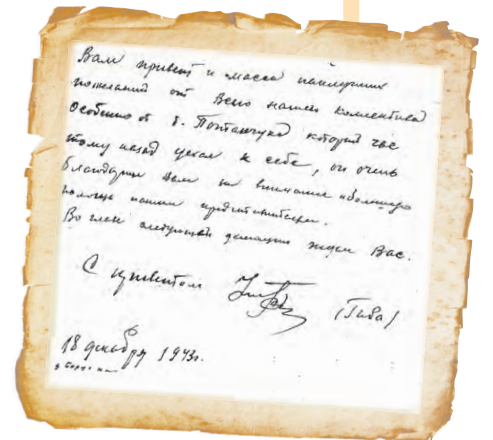 Вам привет и масса наилучших
пожеланий от Всего нашего коллектива
Особенно от т. Полтанчука который час
тому назад уехал к себе, он очень
благодарил Вам за внимание
помощь нашим
Во главе следующей делегации ждем Вас.
С приветом (Габа)
18 декабря 1943г.